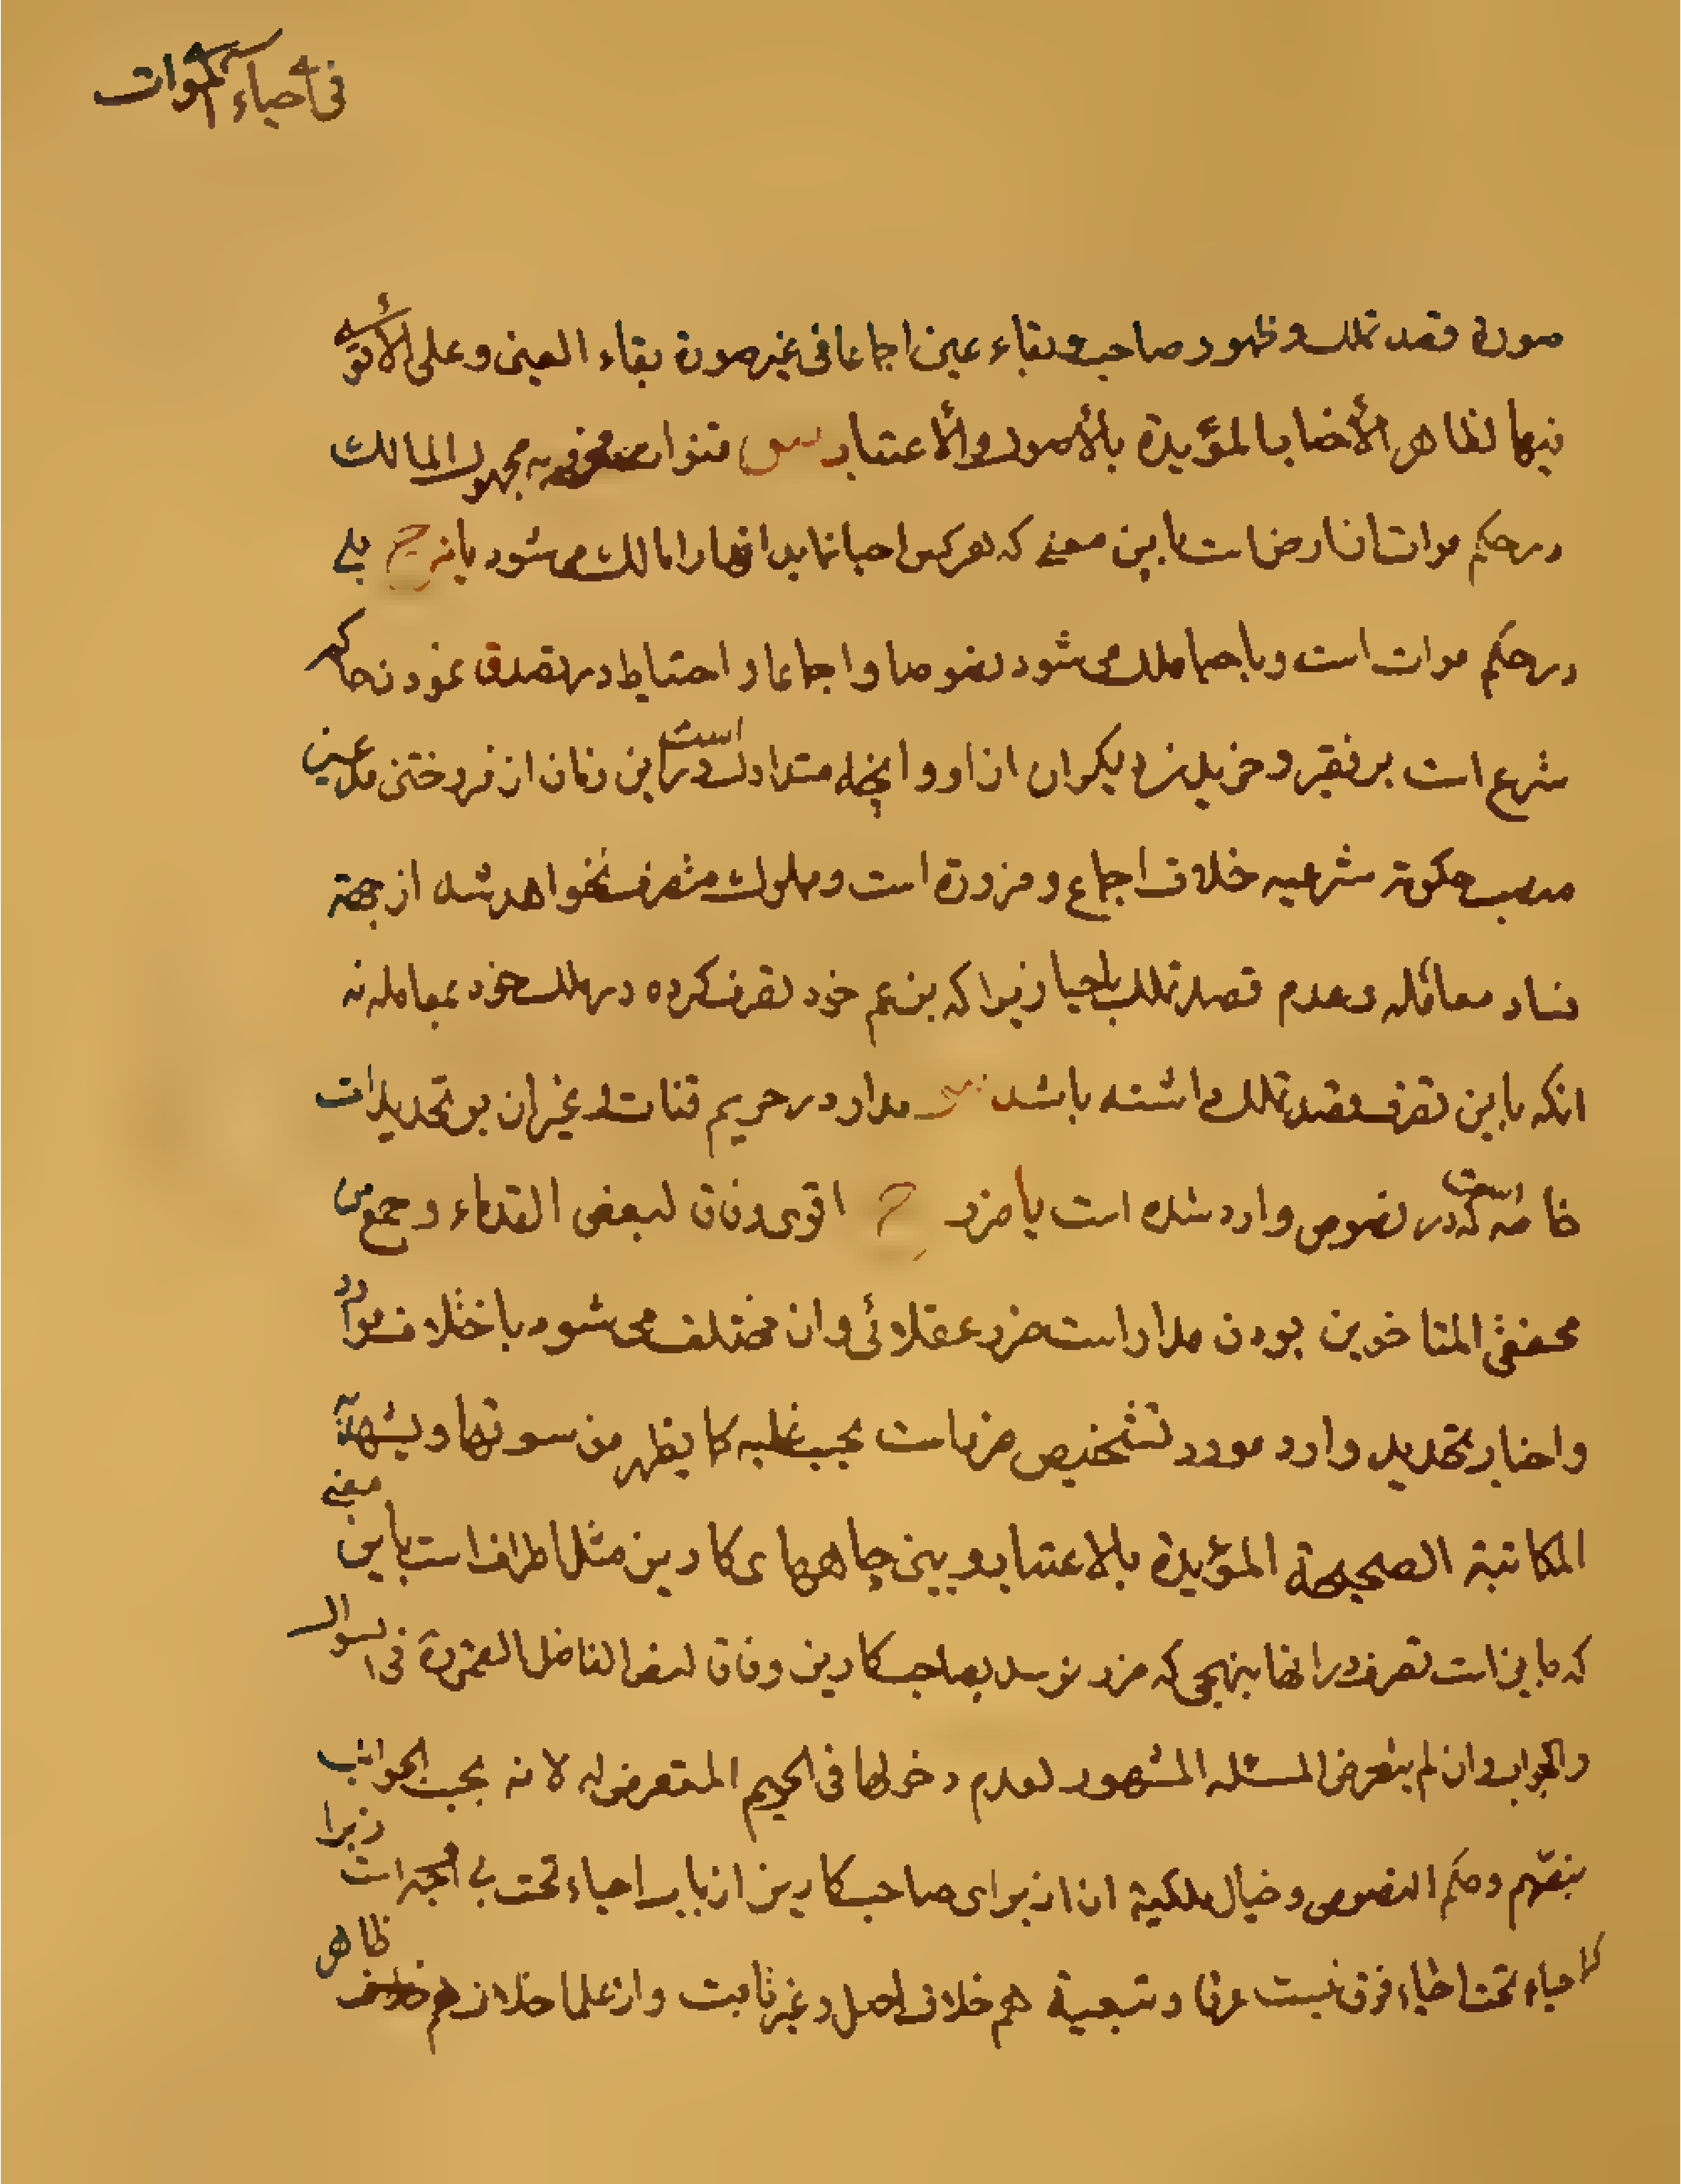 فی احیاء الموات
صورة قصد تملك وظهور صاحب وبقاء عین اجماعا فی غیر صورة بقاء العین وعلی الأقوی
فیها لظاهر الأخبار المؤیدة بالأصول والأعتبار س قنوات مخروبه مجهول المالك
در حکم موات ان ارض است باین معنی که هر کس احیا نماید انها را مالك می شود یا نه ج بلی
در حکم موات است و باحیا ملك می شود نصوصا و اجماعا و احتیاط در تصدق نمودن حاکم
شرع است بر فقیر و خریدن دیگران از او و انچه متداول است در این زمان از فروختن مدعین
منصب حکومة شرعیه خلاف اجماع و ضرورة است و مملوك متصرف نخواهد شد از جهة
فساد معامله و عدم قصد تملك باحیا زیرا که بزعم خود تصرف کرده در ملك خود بمعامله نه
انکه باین تصرف قصد تملك داشته باشد س مدار در حریم قنات و غیر ان بر تحدیدات
خاصه است که در نصوص وارد شده است یا ضرر ج اقوی وفاق لبعض القدماء و جمع من
محققی المتاخرین بودن مدار است ضرر عقلائی و ان مختلف می شود باختلاف موارد
و اخبار تحدید وارد مورد تشخیص ضر است بحسب غلبه کما یظهر من سوقها و یشهد له
المکاتبة الصحیحة المؤیدة بالاعتبار و بین چاههای کاریز مثل اطراف است باین معنی
که جایز است تصرف در انها بنهجی که ضرر نرسد بصاحب کاریز وفاق لبعض الفاضل العصرة فی السؤال
والجواب و ان لم یتعرض المسئله المشهور لعدم دخولها فی الحریم المتعرض له لانه بحسب الجوانب
بنصهم و حکم النصوص و خیال ملکیة ان از برای صاحب کاریز از باب احیاء تحت بی وجه است زیرا
که احیاء تحت احیاء فوق نیست عرفا و تبعیة هم خلاف اصل و غیر ثابت و از علما خلاف هم ظاهر